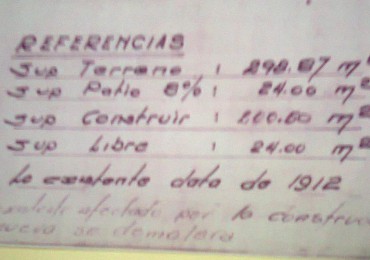 REFERENCIAS
Sup Terreno : 298.87 m²
Sup Patio 8% : 24.00 m²
Sup Construir : 200.00 m²
Sup Libre : 24.00 m²
Lo existente data de 1912
afectado por la construc
nueva se demolera